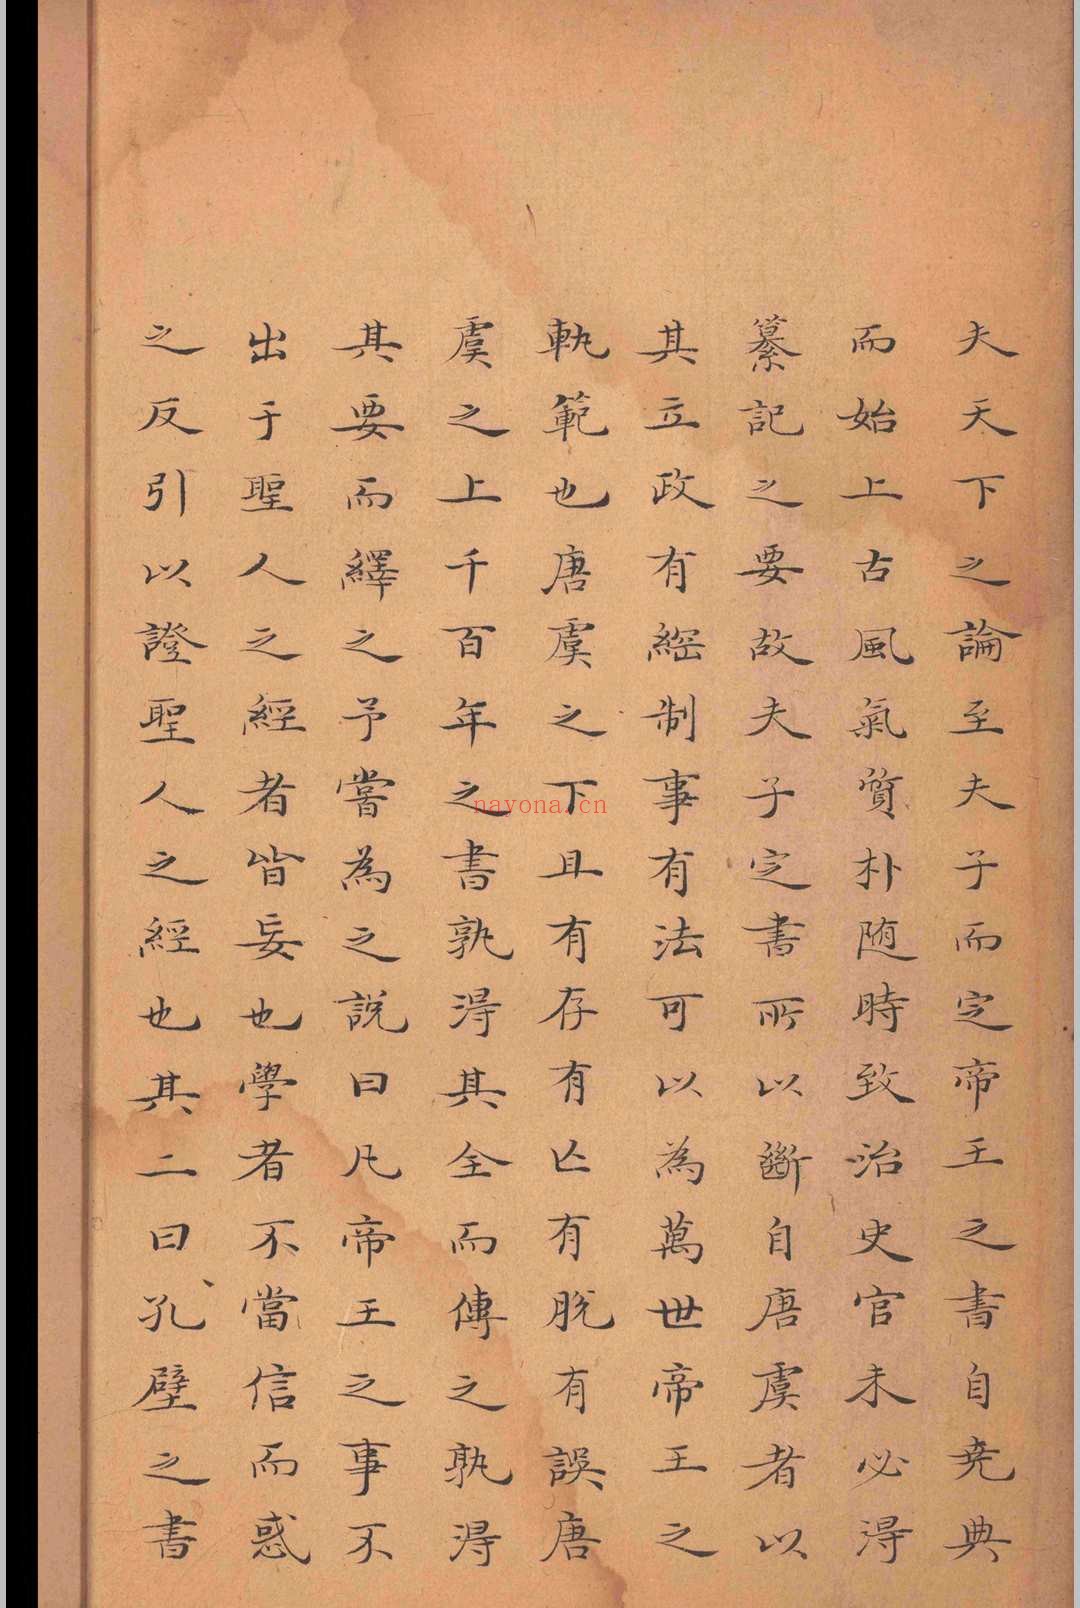 夫天下之論至夫子而定帝王之書自尭典
而始上古風氣質朴随時致治史官未必淂
纂記之要故夫子定書所以斷自唐虞者以
其立政有綱制事有法可以為萬世帝王之
軌範也唐虞之下且有存有亡有脫有誤唐
虞之上千百年之書孰淂其全而傳之孰淂
其要而繹之予嘗為之說曰凡帝王之事不
出于聖人之經者皆妄也學者不當信而惑
之反引以證聖人之經也其二曰孔壁之書
nayona.cn